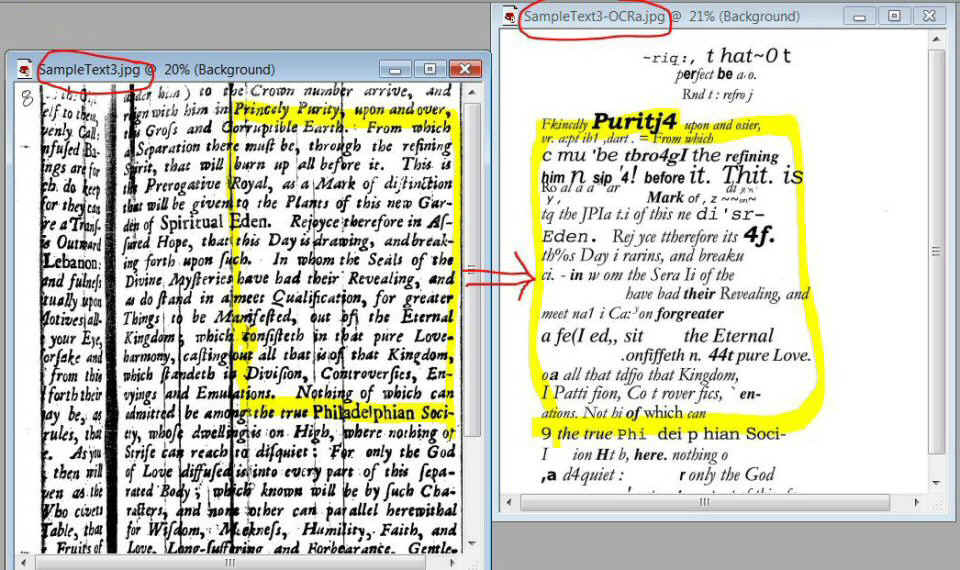 SampleText3.jpg @ 20% (Background)
8
elf to thee,
venly Call:
nfuſed Ba-
ings are for
ch. do keep
for they can
re a Tranſ-
is Outward
Lebanon:
and fulneſs
tually upon
Motives all-
your Eye,
forſake and
from this
forth their
ay be, as
rules, that
e. As you
then will
ven as the
Table, that
Fruits of
under him) to the Crown number arrive, and
reign with him in Princely Purity, upon and over,
the Groſs and Corruptible Earth. From which
a Separation there muſt be, through the refining
Spirit, that will burn up all before it. This is
the Prerogative Royal, as a Mark of diſtinction
that will be given to the Plants of this new Gar-
den of Spiritual Eden. Rejoyce therefore in Aſ-
ſured Hope, that this Day is drawing, and break-
ing forth upon ſuch. In whom the Seals of the
Divine Myſteries have had their Revealing, and
as do ſtand in a meet Qualification, for greater
Things to be Manifeſted, out of the Eternal
Kingdom; which conſiſteth in that pure Love-
harmony, caſting out all that is of that Kingdom,
which ſtandeth in Diviſion, Controverſies, En-
vyings and Emulations. Nothing of which can
admitted be among the true Philadelphian Soci-
ety, whoſe dwelling is on High, where nothing of
Strife can reach to diſquiet: For only the God
of Love diffuſed is into every part of this ſepa-
rated Body; which known will be by ſuch Cha-
racters, and none other can parallel herewithal
for Wiſdom, Meekneſs, Humility, Faith, and
Love, Long-ſuffering and Forbearance, Gentle-
SampleText3-OCRa.jpg @ 21% (Background)
~riq:, t hat~O t
perfect be a o.
Rnd t : refro j
Fkincdly Puritj4 upon and osier,
vr. a:pt ib1 ,dart . = From which
c mu 'be tbro4gI the refining
him n sip '4! before it. Thit. is
Ro al a a ar
y , Mark of , z ~~on~
tq the JPIa t.i of this ne di'sr-
Eden. Rej yce ttherefore its 4f.
th%s Day i rarins, and breaku
ci. - in w om the Sera Ii of the
have bad their Revealing, and
meet na1 i Ca:³on forgreater
a fe(I ed,, sit the Eternal
.onfiffeth n. 44t pure Love.
oa all that tdfjo that Kingdom,
I Patti fion, Co t rover fics, ` en-
ations. Not hi of which can
9 the true Phi dei p hian Soci-
I ion Ht b, here. nothing o
,a d4quiet : r only the God